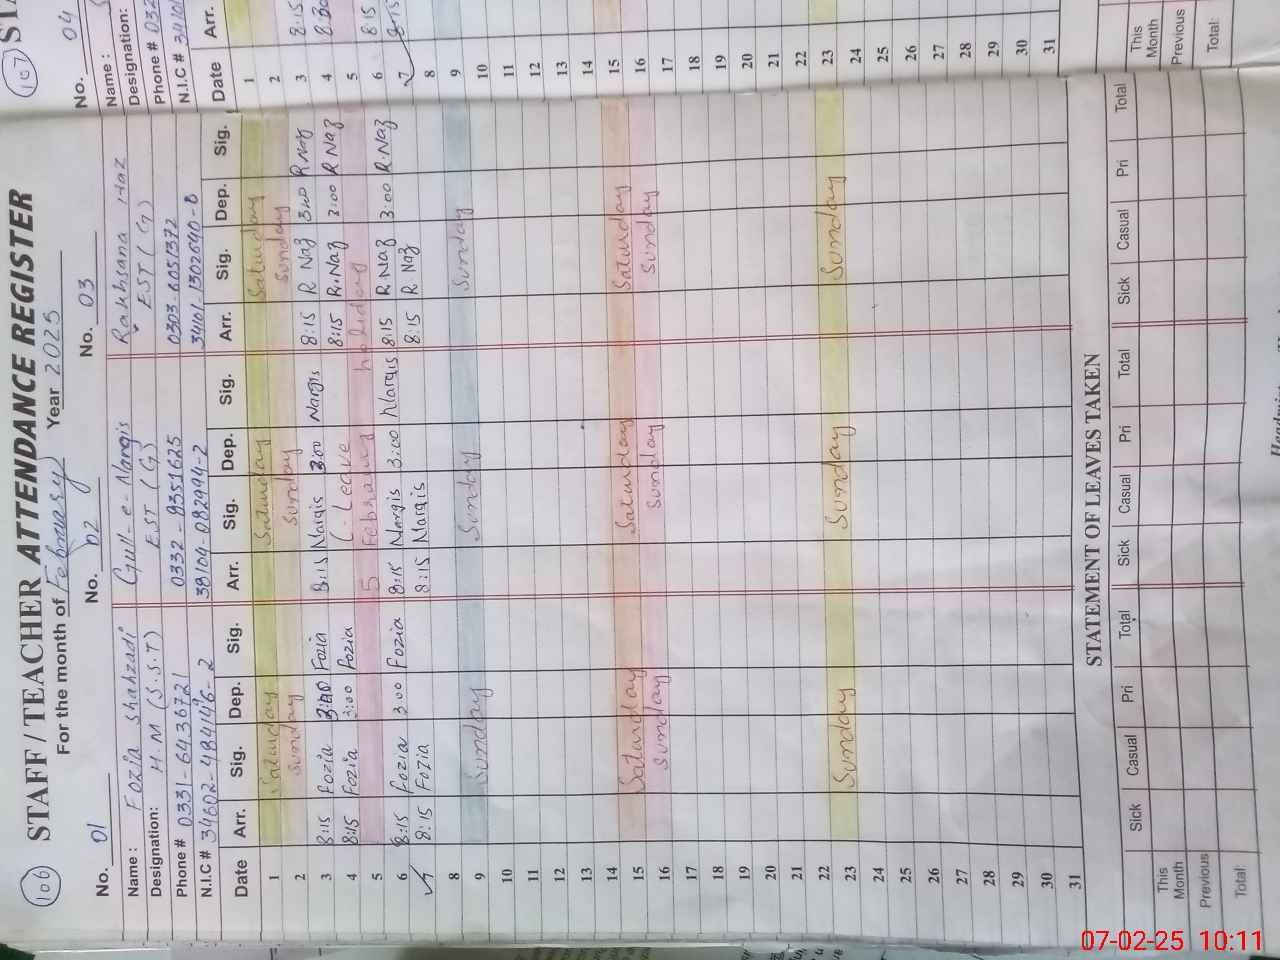 106 STAFF / TEACHER ATTENDANCE REGISTER
For the month of February Year 2025
No. 01 No. 02 No. 03
Name : Fozia Shahzadi Gull-e-Nargis Rakhsana Naz
Designation: H.M (S.S.T) EST (G) EST (G)
Phone # 0331-6436721 0332-9351625 0303-6051372
N.I.C # 34602-4841496-2 38104-082994-2 3401-1302640-8
Date Arr. Sig. Dep. Sig. Arr. Sig. Dep. Sig. Arr. Sig. Dep. Sig.
1 Saturday Saturday Saturday
2 Sunday Sunday Sunday
3 8:15 Fozia 3:00 Fozia 8:15 Nargis 3:00 Nargis 8:15 R Naz 3:00 R Naz
4 8:15 Fozia 3:00 Fozia C-Leave 8:15 R.Naz 3:00 R Naz
5 5 February holiday
6 8:15 Fozia 3:00 Fozia 8:15 Nargis 3:00 Nargis 8:15 R.Naz 3:00 R.Naz
7 8:15 Fozia 8:15 Nargis 8:15 R.Naz
8
9 Sunday Sunday Sunday
10
11
12
13
14
15 Saturday Saturday Saturday
16 Sunday Sunday Sunday
17
18
19
20
21
22
23 Sunday Sunday Sunday
24
25
26
27
28
29
30
31
STATEMENT OF LEAVES TAKEN
Sick Casual Pri Total Sick Casual Pri Total Sick Casual Pri Total
This Month
Previous
Total:
107
No. 04
Name :
Designation:
Phone # 032
N.I.C #
Date Arr.
1
2
3 8:15
4 8:30
5
6 8:15
7 8:15
8
9
10
11
12
13
14
15
16
17
18
19
20
21
22
23
24
25
26
27
28
29
30
31
This Month
Previous
Total:
07-02-25 10:11